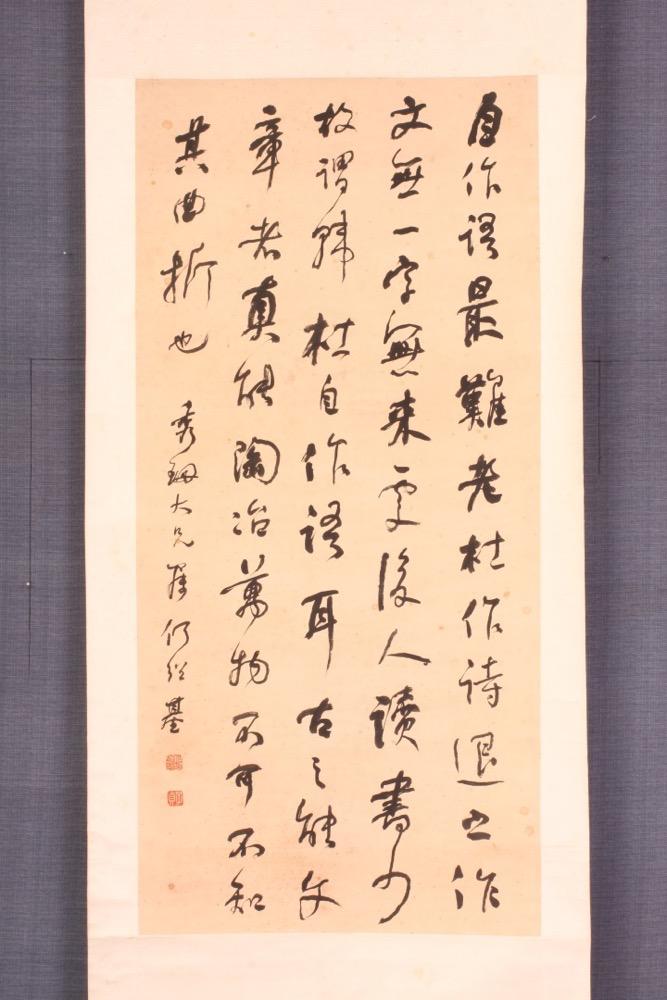 自作語最難老杜作詩退之作
文無一字無来處後人讀書少
故謂韓杜自作語耳古之能文
章者真能陶冶萬物不可不知
其曲折也 秀 大兄屬 何紹基